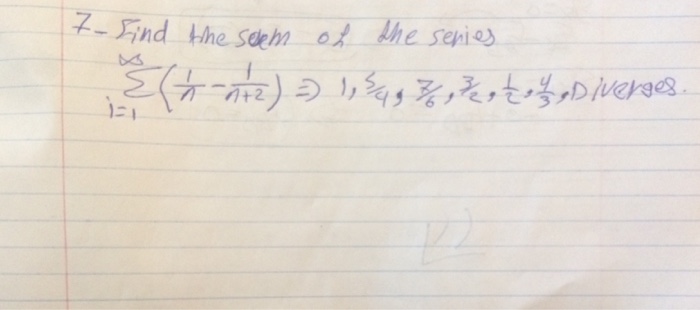 7- Find the sum of the series
∞
∑ (1/n - 1/n+2) ⇒ 1, 5/4, 7/6, 3/2, 1/2, 4/3, Diverges.
i=1